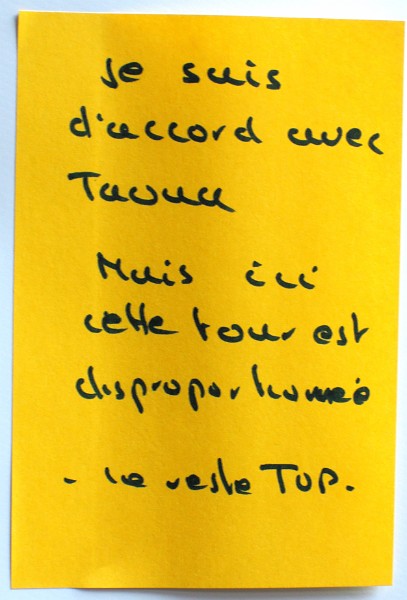 Je suis
d'accord avec
Taoua
Mais ici
cette tour est
disproportionnée
- le reste TOP.